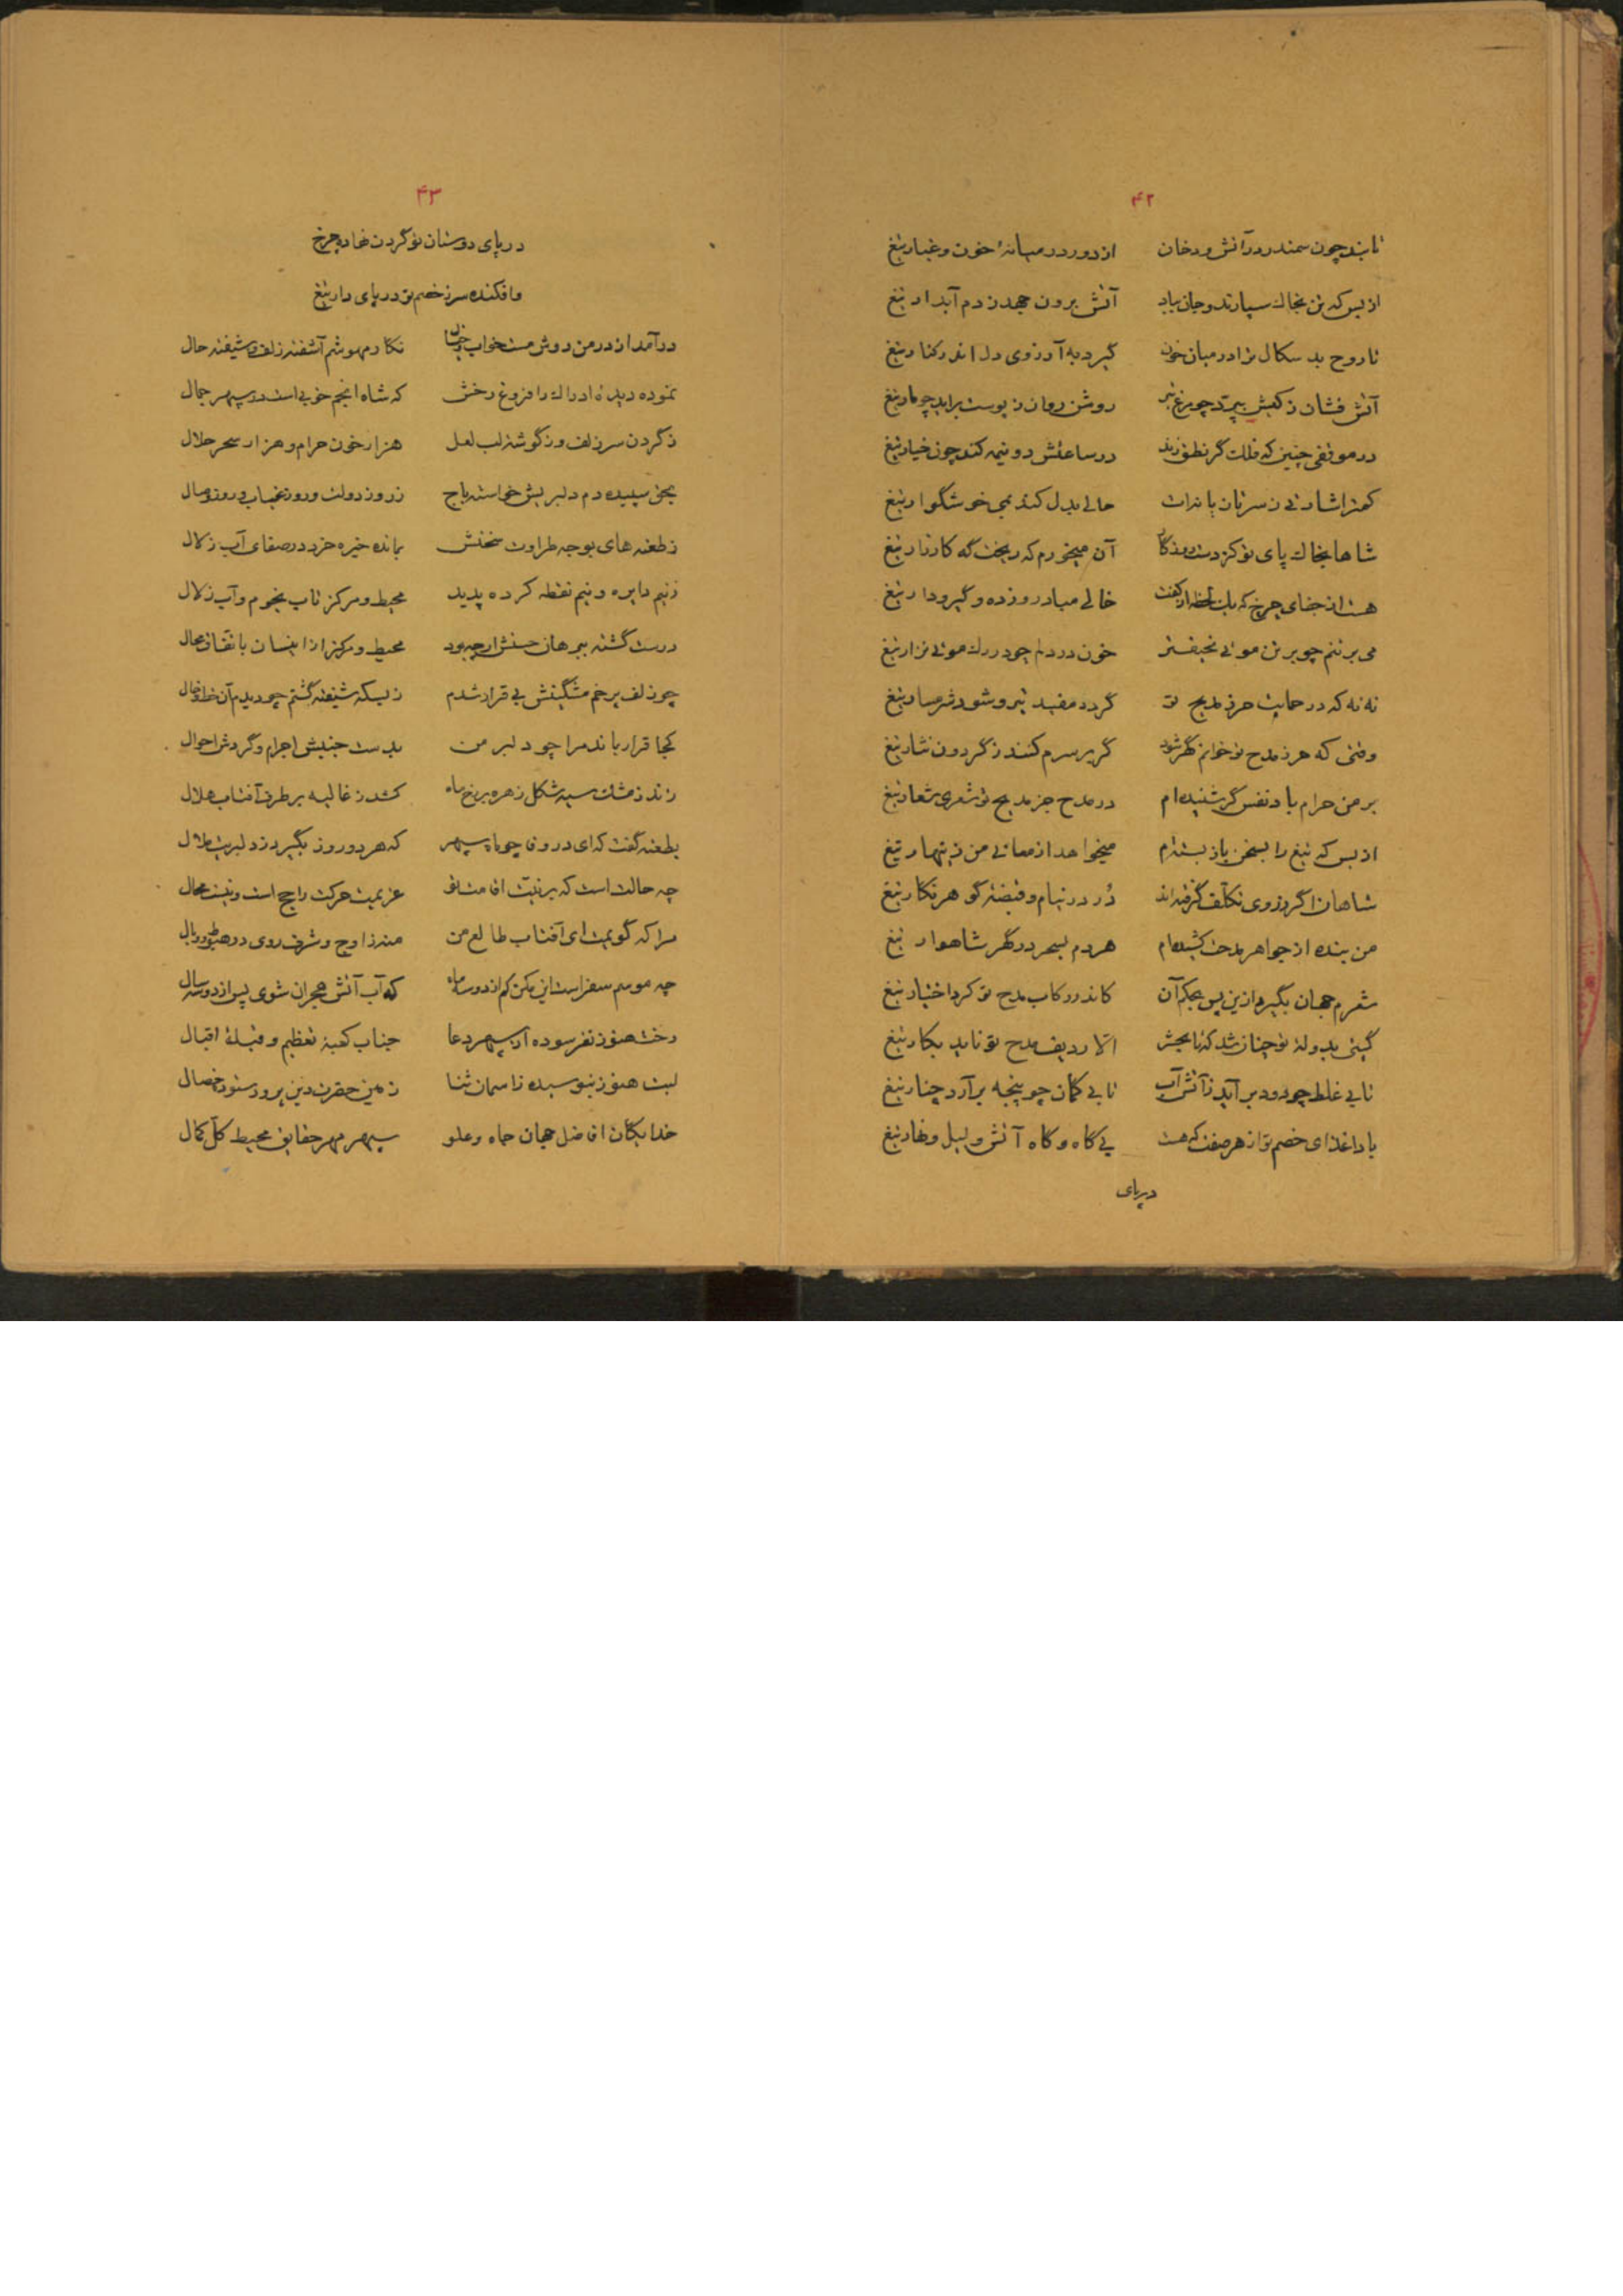 ۴۲
تابد چون سمندر در آتش و دخان از دور در میانهٔ خون و غبار تیغ
از بس که تن بخاک سپارند و جان بباد آتش برون جهد ز دم آبدار تیغ
تا روح بد سکال ترا در میان خون گیرد به آرزوی دل اندر کنار تیغ
آتش فشان ز کیش بپرد چو مرغ تیر روشن روان ز پوست برآید چو مار تیغ
در موقفی چنین که فلک گر نطق زند در ساعتش دو نیمه کند چون خیار تیغ
کمتر اشارتی ز سر تازیانه‌ات حالی بدل کند بمی خوشگوار تیغ
شاها بخاک پای تو کز دست روزگار آن میخورم که ریخت گه کارزار تیغ
هست از جفای چرخ که یک لحظه از کفت خالی مباد روز ده و گیر و دار تیغ
می بر تنم چو بر تن موئی نحیف‌تر خون در دلم چو در رگ موئی نزار تیغ
نه نه که در حمایت حرز مدیح تو گردد مفید تیر و شود شرمسار تیغ
وقتی که حرز مدح تو خوانم گهر شود گر بر سرم کنند ز گردون نثار تیغ
بر من حرام باد نفس گر شنیده‌ام در مدح جز مدیح تو شعری شعار تیغ
از بس که تیغ را بسخن باز بسته‌ام میخواهد از معانی من زینهار تیغ
شاهان اگر ز روی تکلف گرفته‌اند دُر در نیام و قبضهٔ گوهر نگار تیغ
من بنده از جواهر مدحت کشیده‌ام هر دم بسحر در گهر شاهوار تیغ
شعرم جهان بگیرد ازین پس بحکم آن کاندر رکاب مدح تو کرد اختیار تیغ
گیتی بدولت تو چنان شد که تا بحشر الا ردیف مدح تو ناید بکار تیغ
تا بی غلط چو دود برآید ز آتش آب تا بی گمان چو پنجه برآرد چنار تیغ
بادا غذای خصم تو از هر صفت که هست بی گاه و گاه آتش و لیل و نهار تیغ
در پای
۴۳
در پای دوستان تو گردن نهاده چرخ
وافکنده سر ز خصم تو در پای دار تیغ
درآمد از در من دوش مست خواب و خیال نگار مهوشم آشفته زلف و شیفته حال
نموده دیدهٔ ادراک را فروغ رخش که شاه انجم خوبی است در سپهر جمال
ز گردن سر زلف و ز گوشهٔ لب لعل هزار خون حرام و هزار سحر حلال
بحق سپیده دم دلبریش خواسته باج ز روز دولت و روز شباب و روز وصال
ز طعنه‌های بوجه طراوت سخنش بمانده خیره خرد در صفای آب زلال
ز نیم دایره و نیم نقطه کرده پدید محیط و مرکز تاب نجوم و آب زلال
درست گشته ببرهان حسنش ار چه بود محیط و مرکز ازاینسان باتفاق محال
چو زلف پر خم مشگینش بی قرار شدم ز بسکه شیفته گشتم چو دیدم آن خط و خال
کجا قرار باند مرا چو دلبر من بدست جنبش اجرام و گردش احوال
زند ز مشک سیه شکل زهره بر رخ ماه کشد ز غالیه بر طرف آفتاب هلال
بطعنه گفت که ای در وفا چو ماه سپهر که هر دو روز بگیرد ز دلبریت ملال
چه حالت است که بر نیت اقامت تو عزیمت حرکت راجح است و نیست محال
مرا که گویمت ای آفتاب طالع من منه ز اوج و شرف روی در هبوط و وبال
چه موسم سفر است این مکن کم از دو سه ماه که آب آتش هجران شوی پس از دو سه سال
رخت هنوز نفرسوده از سپهر دعا جناب کعبهٔ تعظیم و قبلهٔ اقبال
لبت هنوز نبوسیده ز آسمان ثنا زمین حضرت دین پرور ستوده خصال
خدایگان افاضل جهان جاه و علو سپهر مهر حقایق محیط کل کمال